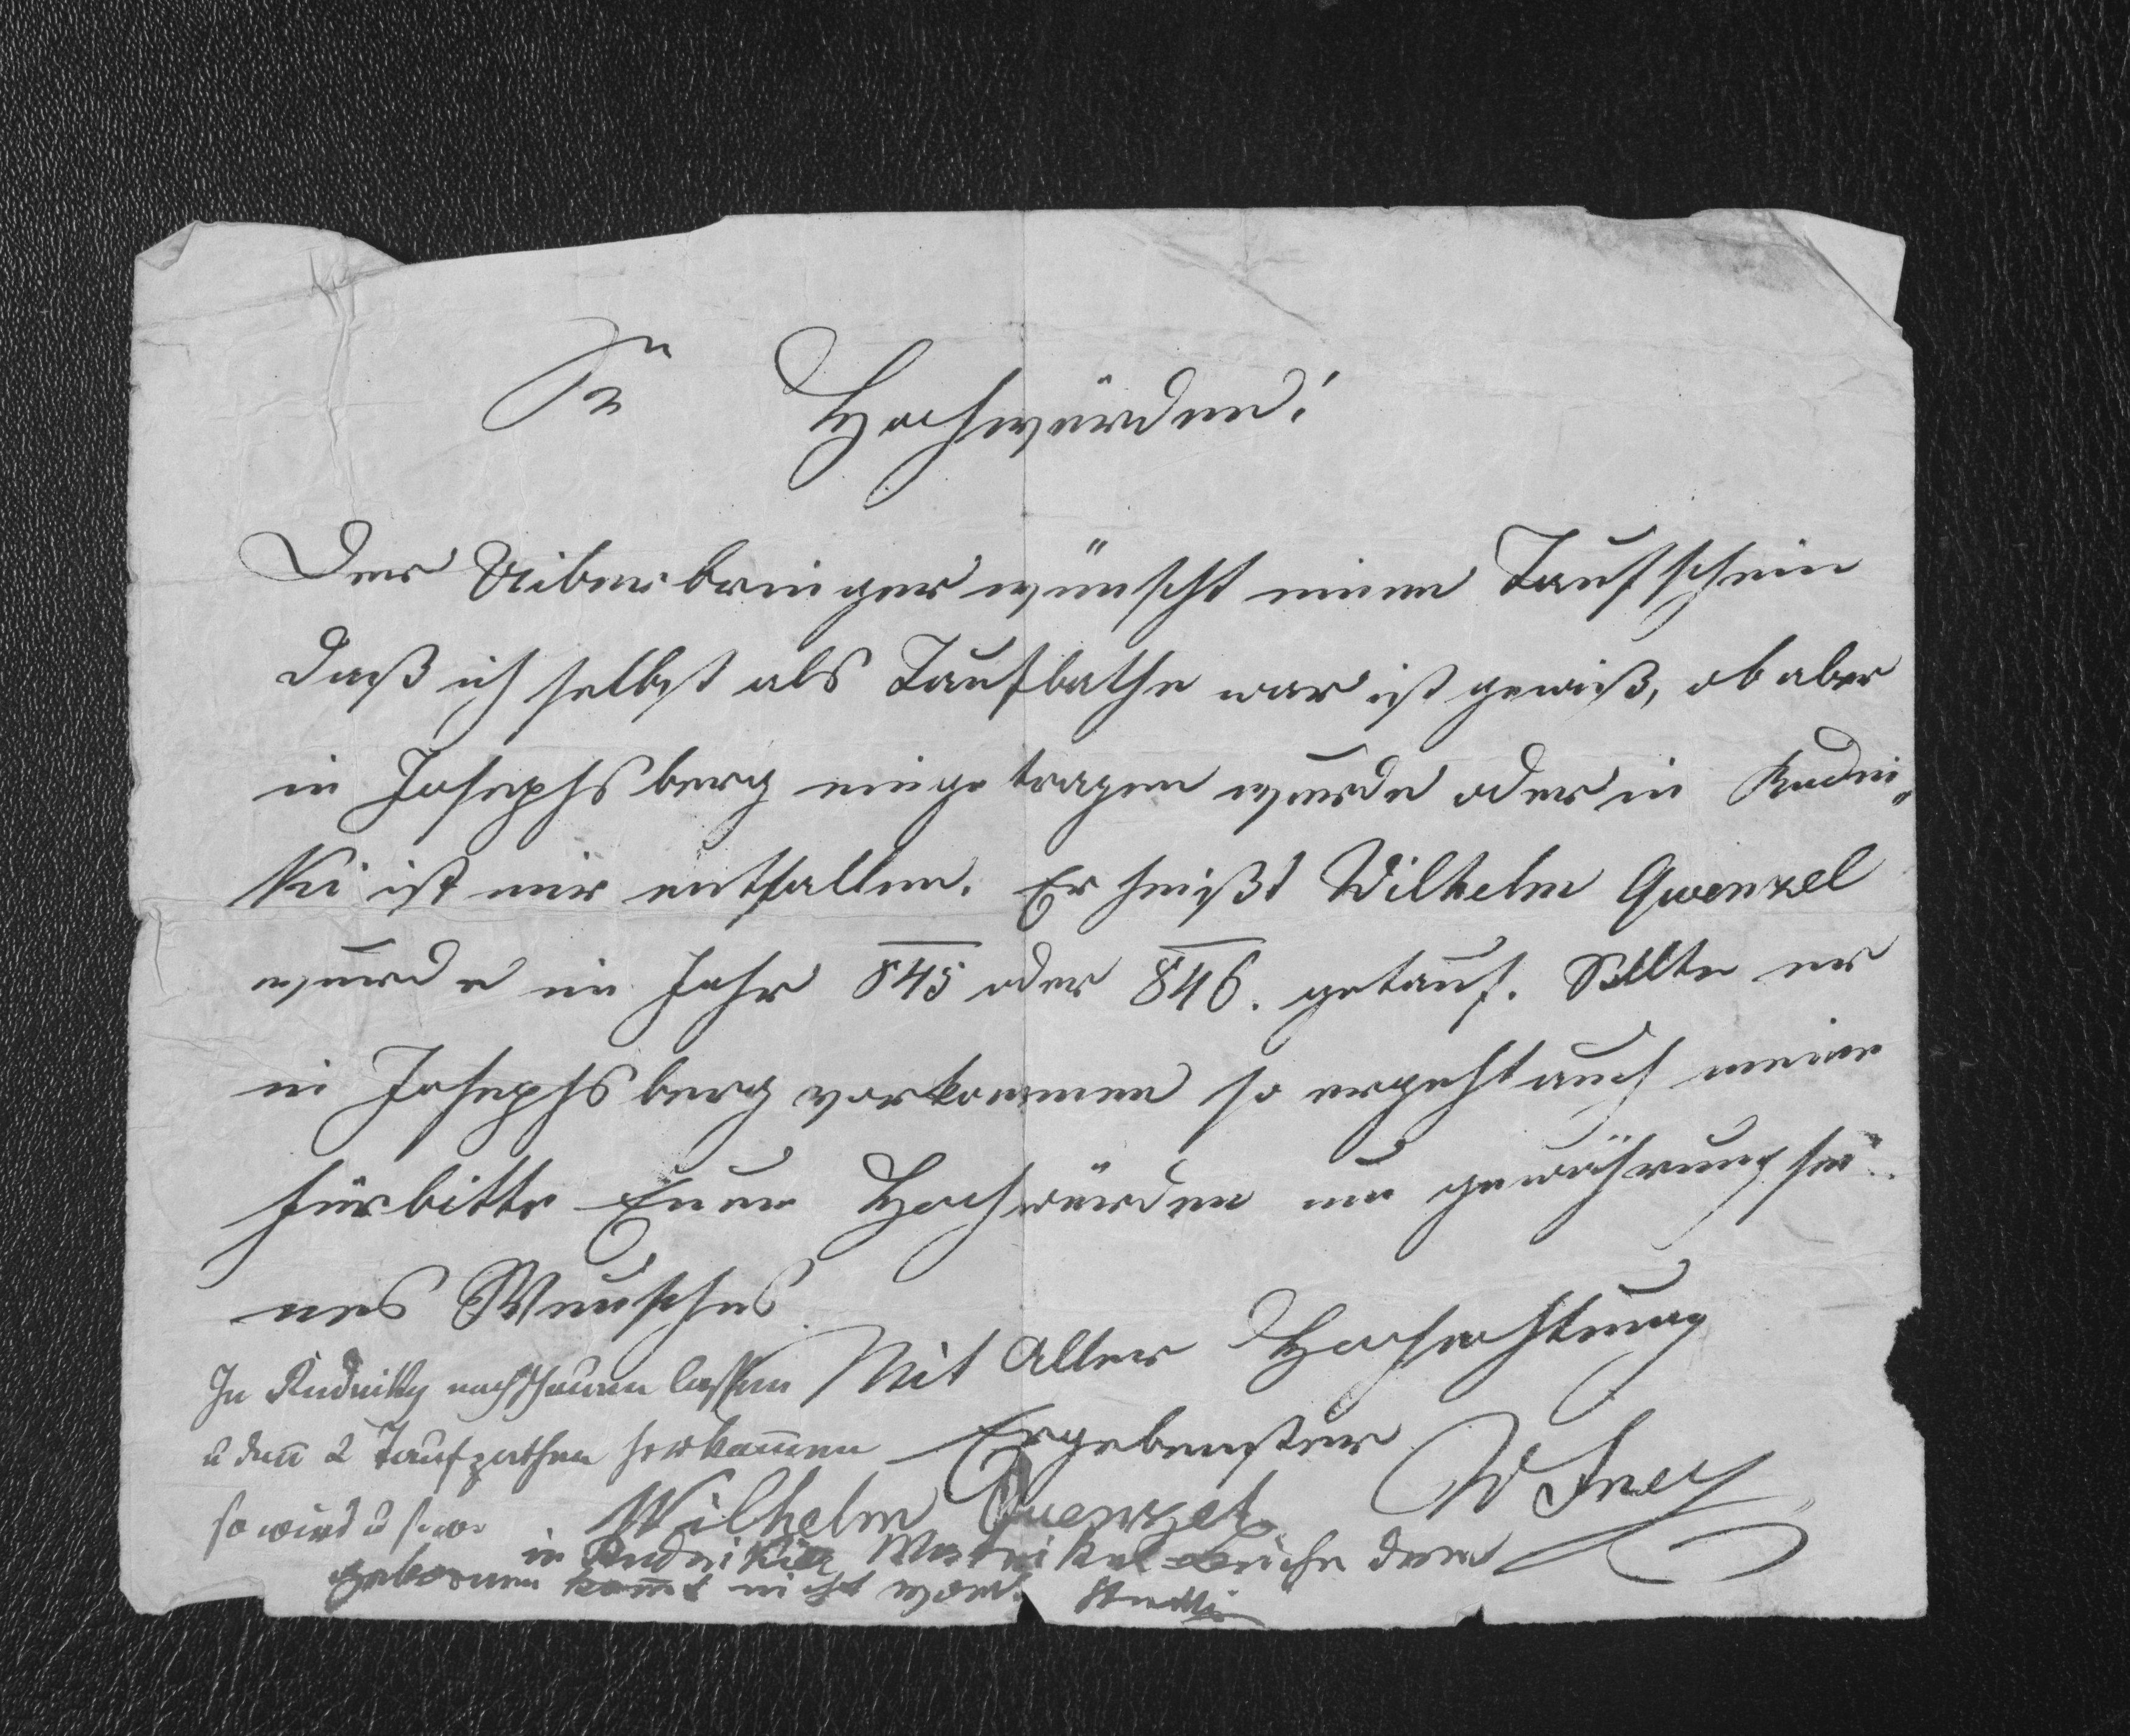 Hochwürden!
Der Uiberbringer wünscht einen Taufschein
daß ich selbst als Taufbathe war ist gewiß, ob aber
in Josephsberg eingetragen wurde oder in Rudni„
ki ist mir entfallen. Er heißt Wilhelm Qwenzel
wurde im Jahr 845 oder 846. getauf. Sollte er
in Josephsberg vorkommen so ergeht auch meine
fürbitte Euer Hochwürden um gewährung sei„
nes Wunsches
Mit Aller Hochachtung
Ergebenster
W Frey
In Rudniky nachschauen lassen
u den 2 Taufpathen herkom̅en
so wird u s. w.
Wilhelm Quenzel
in Rudnikier Matrikelbuche der
gebornen kom̅t nicht vor.